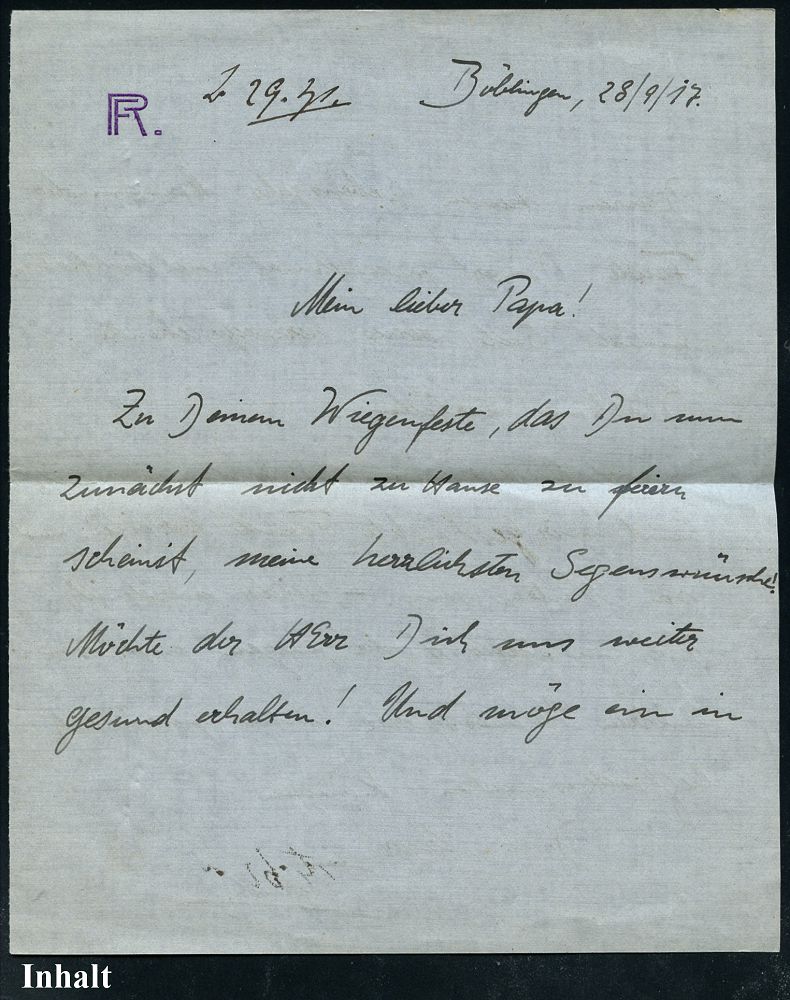 FR.
29.
Böblingen, 28/9/17.
Mein lieber Papa!
Zu Deinem Wiegenfeste, das Du nun
zunächst nicht zu Hause zu feiern
scheinst, meine herzlichsten Segenswünsche!
Möchte der HErr Dich uns weiter
gesund erhalten! Und möge ein in
Inhalt